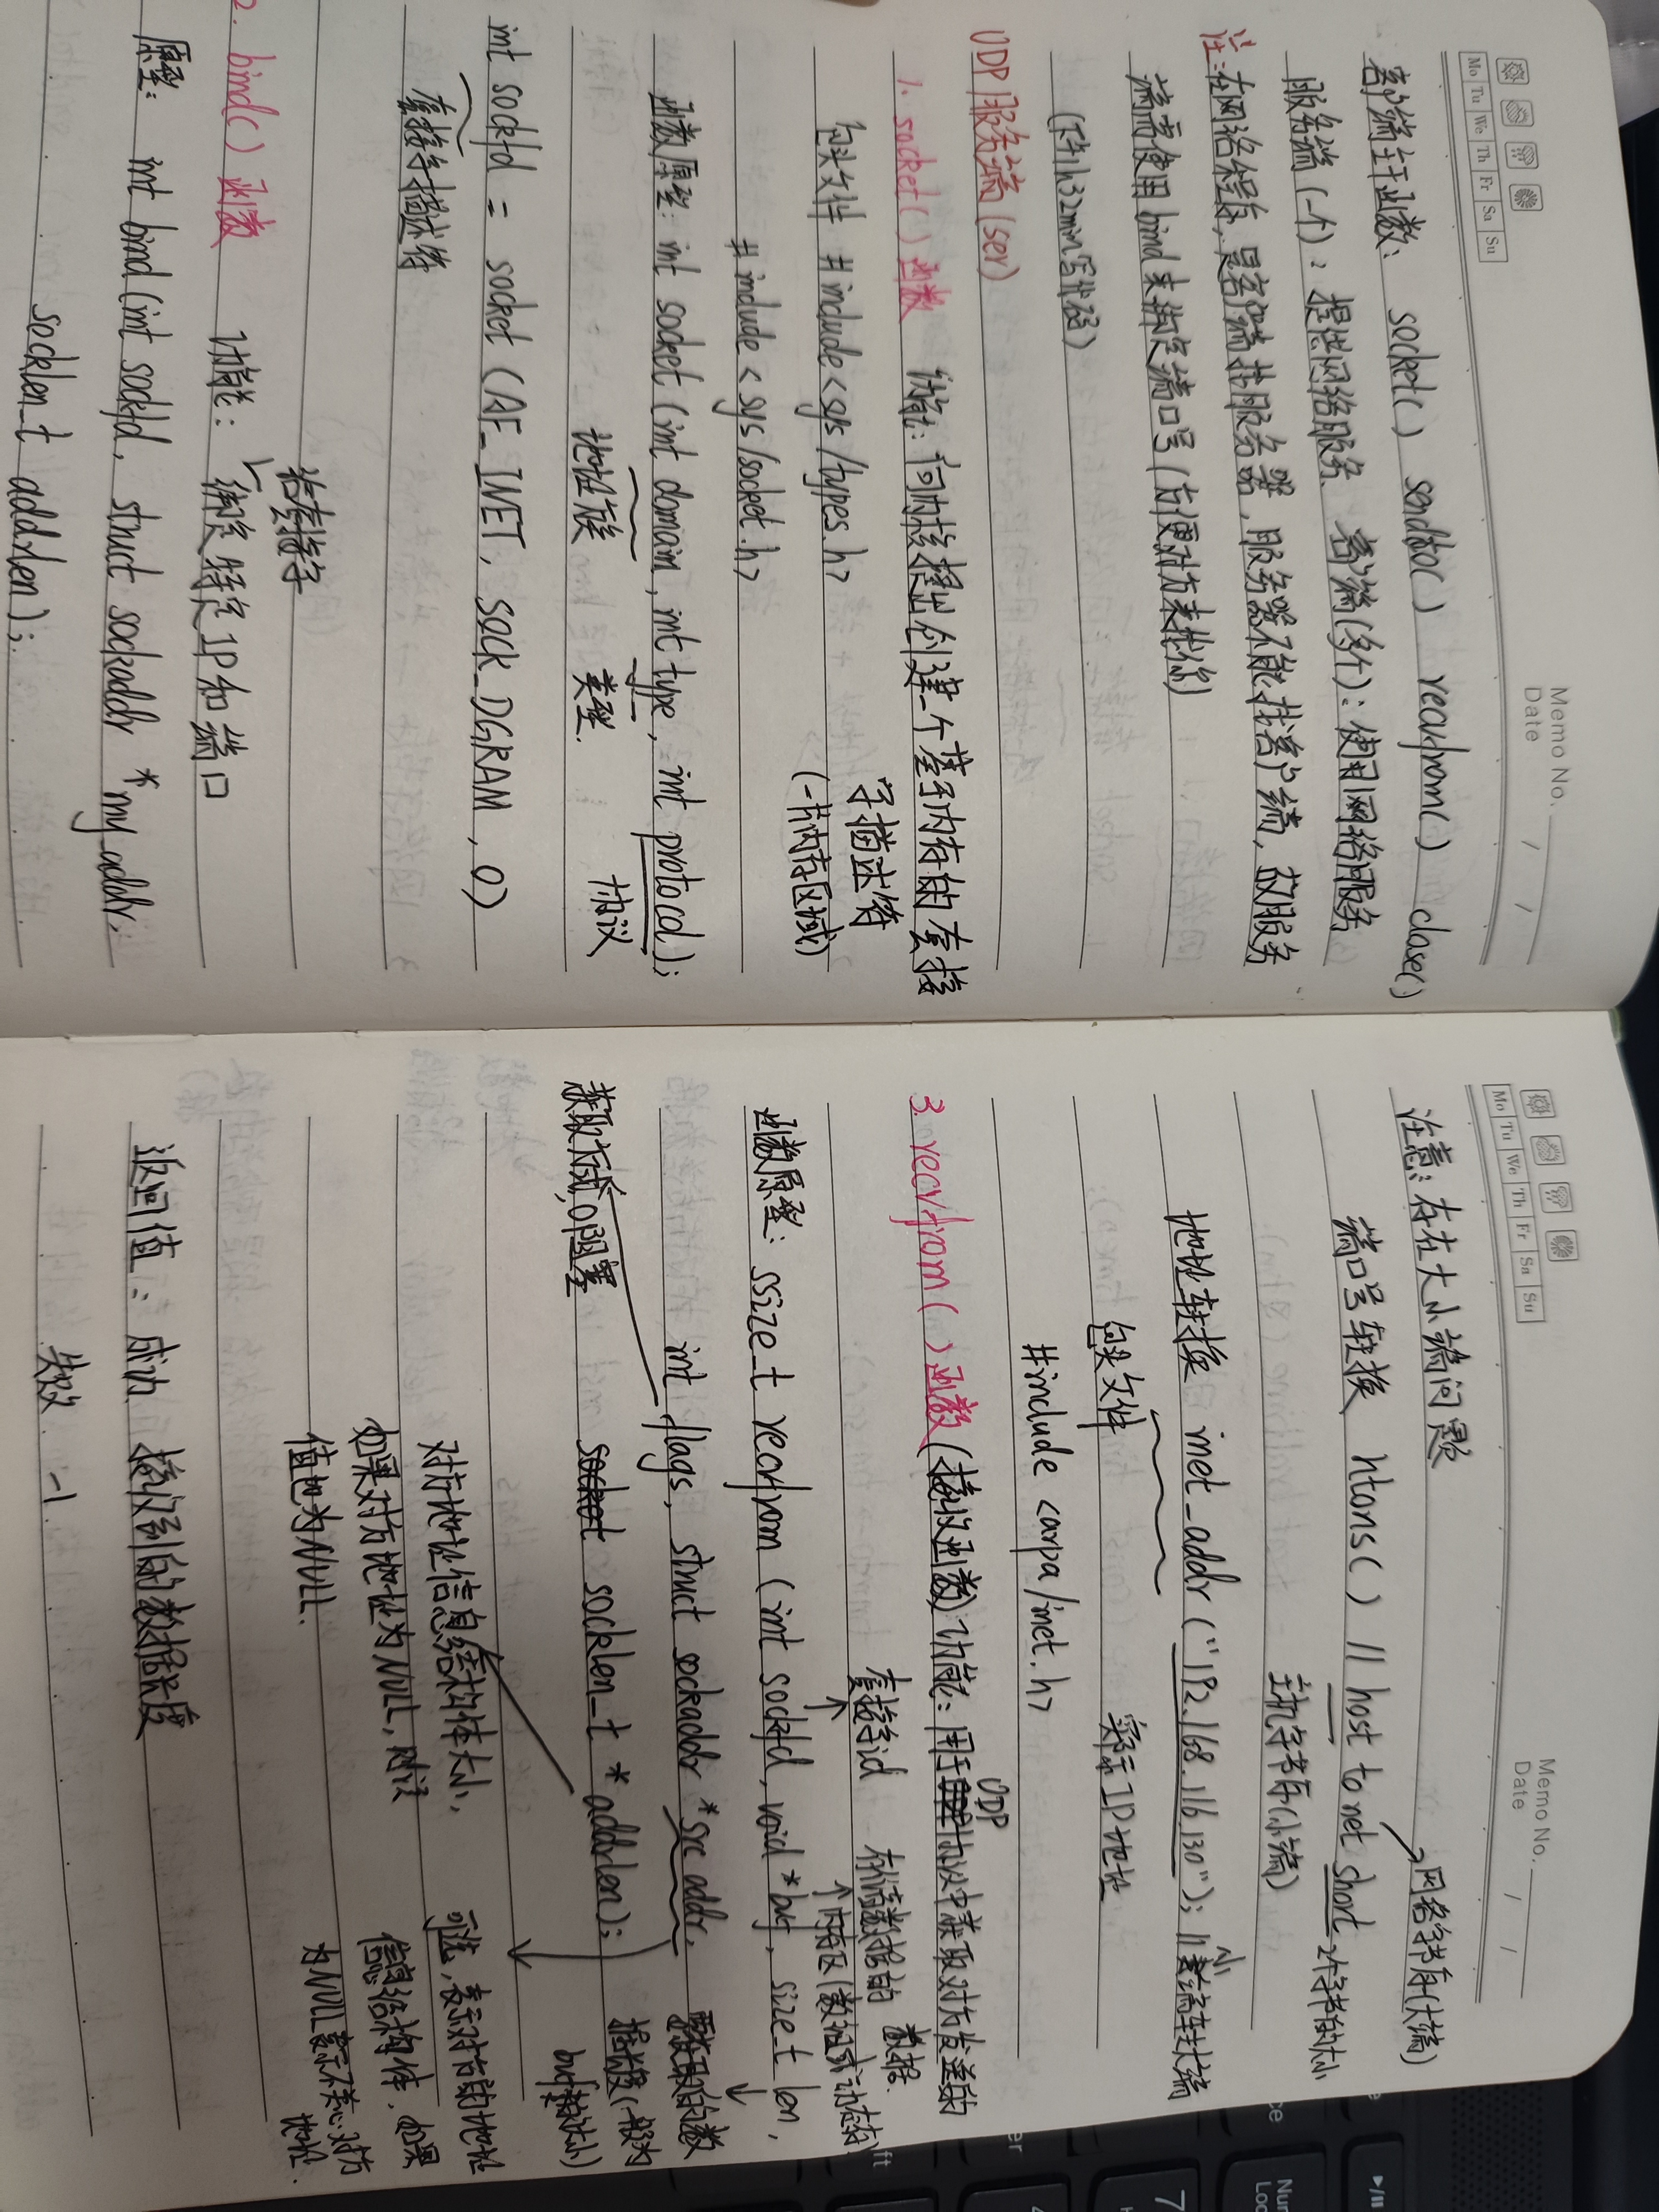 Memo No.
Date / /
Mo Tu We Th Fr Sa Su
客户端三函数: socket() sendto() recvfrom() close()
服务端(一个): 提供网络服务 客户端(多个): 使用网络服务
注: 在网络程序, 是客户端找服务器, 服务器不能找客户端, 故服务
端需使用bind来绑定端口号(方便对方来找你)
(下午1h32min写代码)
UDP服务端(ser)
1. socket()函数 功能: 向内核提出创建一个基于内存的套接
字描述符
包头文件 #include<sys/types.h> (一片内存区域)
#include<sys/socket.h>
函数原型: int socket(int domain, int type, int protocol);
地址族 类型. 协议
int sockfd = socket(AF_INET, SOCK_DGRAM, 0)
套接字描述符
给套接字
2. bind()函数 功能: 绑定特定IP和端口
原型: int bind(int sockfd, struct sockaddr *my_addr,
socklen_t addrlen);
Memo No.
Date / /
Mo Tu We Th Fr Sa Su
注意: 存在大小端问题
网络字节序(大端)
端口号转换 htons() // host to net short 2个字节的大小
主机字节序(小端)
地址转换 inet_addr("192.168.116.130"); //小端转大端
包头文件 实际IP地址
#include <arpa/inet.h>
3. recvfrom()函数(接收函数) 功能: 用于UDP协议中获取对方发送的
数据.
套接字id 存储读数据的
内存区(数组或动态内存)
函数原型: ssize_t recvfrom(int sockfd, void *buf, size_t len,
int flags, struct sockaddr *src_addr, 要获取的数
据长度(一般为
buf数组大小)
获取方式, 0阻塞 socket socklen_t *addrlen);
对方地址信息结构体大小,
如果对方地址为NULL, 则该
值也为NULL.
可选, 表示对方的地址
信息结构体, 如果
为NULL表示不关心对方
地址.
返回值: 成功 接收到的数据长度
失败 -1